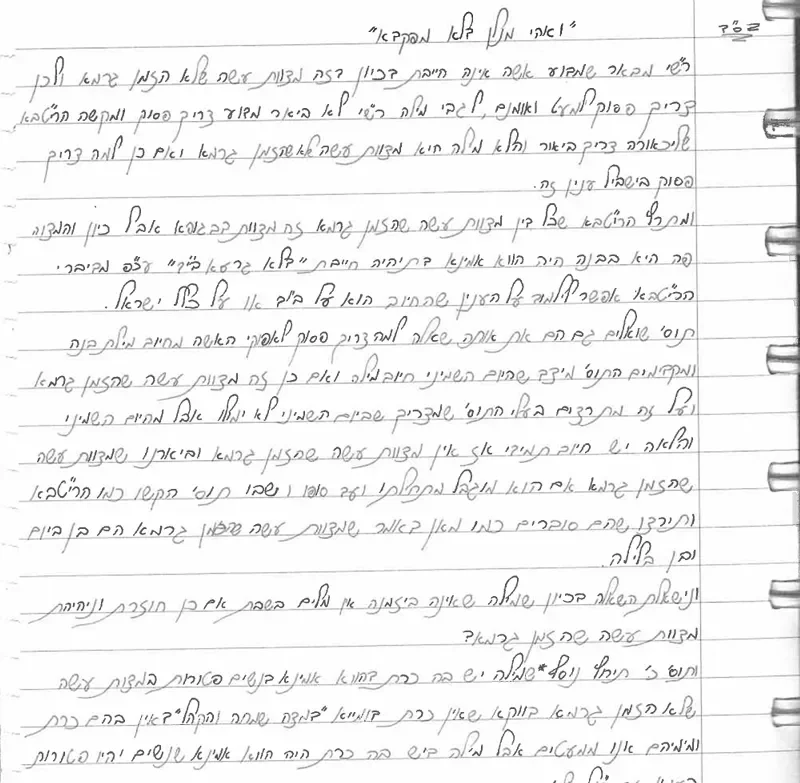 בס"ד
"ואיהי מנלן דלא מפקדא"
רש"י מבאר שמבוע אשה אינה חייבת בכיון דזה מצוות עשה שלא הזמן גרמא ולכן
צריך פסוק למעט ואומנם, לגבי מילה רש"י לא ביאר מדוע צריך פסוק ומקשה הריטב"א
שלכאורה צריך ביאור והלא מילה היא מצוות עשה שהזמן גרמא ואם כן למה צריך
פסוק בישביל ענין זה.
ומתרץ הריטב"א שכל דין מצוות עשה שהזמן גרמא זה מצוות דבגופא אבל כיון והמצוה
פה היא בבנה היה הווא אמינא דתיהיה חייבת "דלא גרעא מב"ד" ע"פ מדיברי
הריטב"א אפשר ללמוד על הענין שהחיוב הוא על ב"ד או על כלל ישראל.
תוס' שואלים גם הם את אותה שאלה למה צריך פסוק לאפוקי האשה מחיוב מילת בנה
ומקדימים התוס' מיצד שהיום השמיני חיוב מילה ואם כן זה מצוות עשה שהזמן גרמא
ועל זה מתרצים בעלי התוס' שמצריך שביום השמיני לא ימולו אבל מהיום השמיני
והלאה יש חיוב תמידי אז אין מצוות עשה שהזמן גרמא וביארנו שמצוות עשה
שהזמן גרמא אם הוא מוגבל מתחילתו ועד סופו ושבו תוס' הקשו כמו הריטב"א
ותירצו שהם סוברים כמו מאן דאמר שמצוות עשה שהזמן גרמא הם בן ביום
ובן בלילה.
ונישאלת השאלה בכיון שמילה שאינה ביזמנה אין מלים בשבת אם כן חוזרת וניהיהת
מצוות עשה שהזמן גרמא?
ותוס' כ' תירוץ נוסף שמילה יש בה כרת דהווא אמינא בנשים פטורות במצות עשה
שלא הזמן גרמא בווקא שאין כרת בומייא "דמצה שמחה והקהל" באין בהם כרת
ומימיהם אנו ממעטים אבל מילה ביש בה כרת היה הווא אמינא שנשים יהיו פטורות